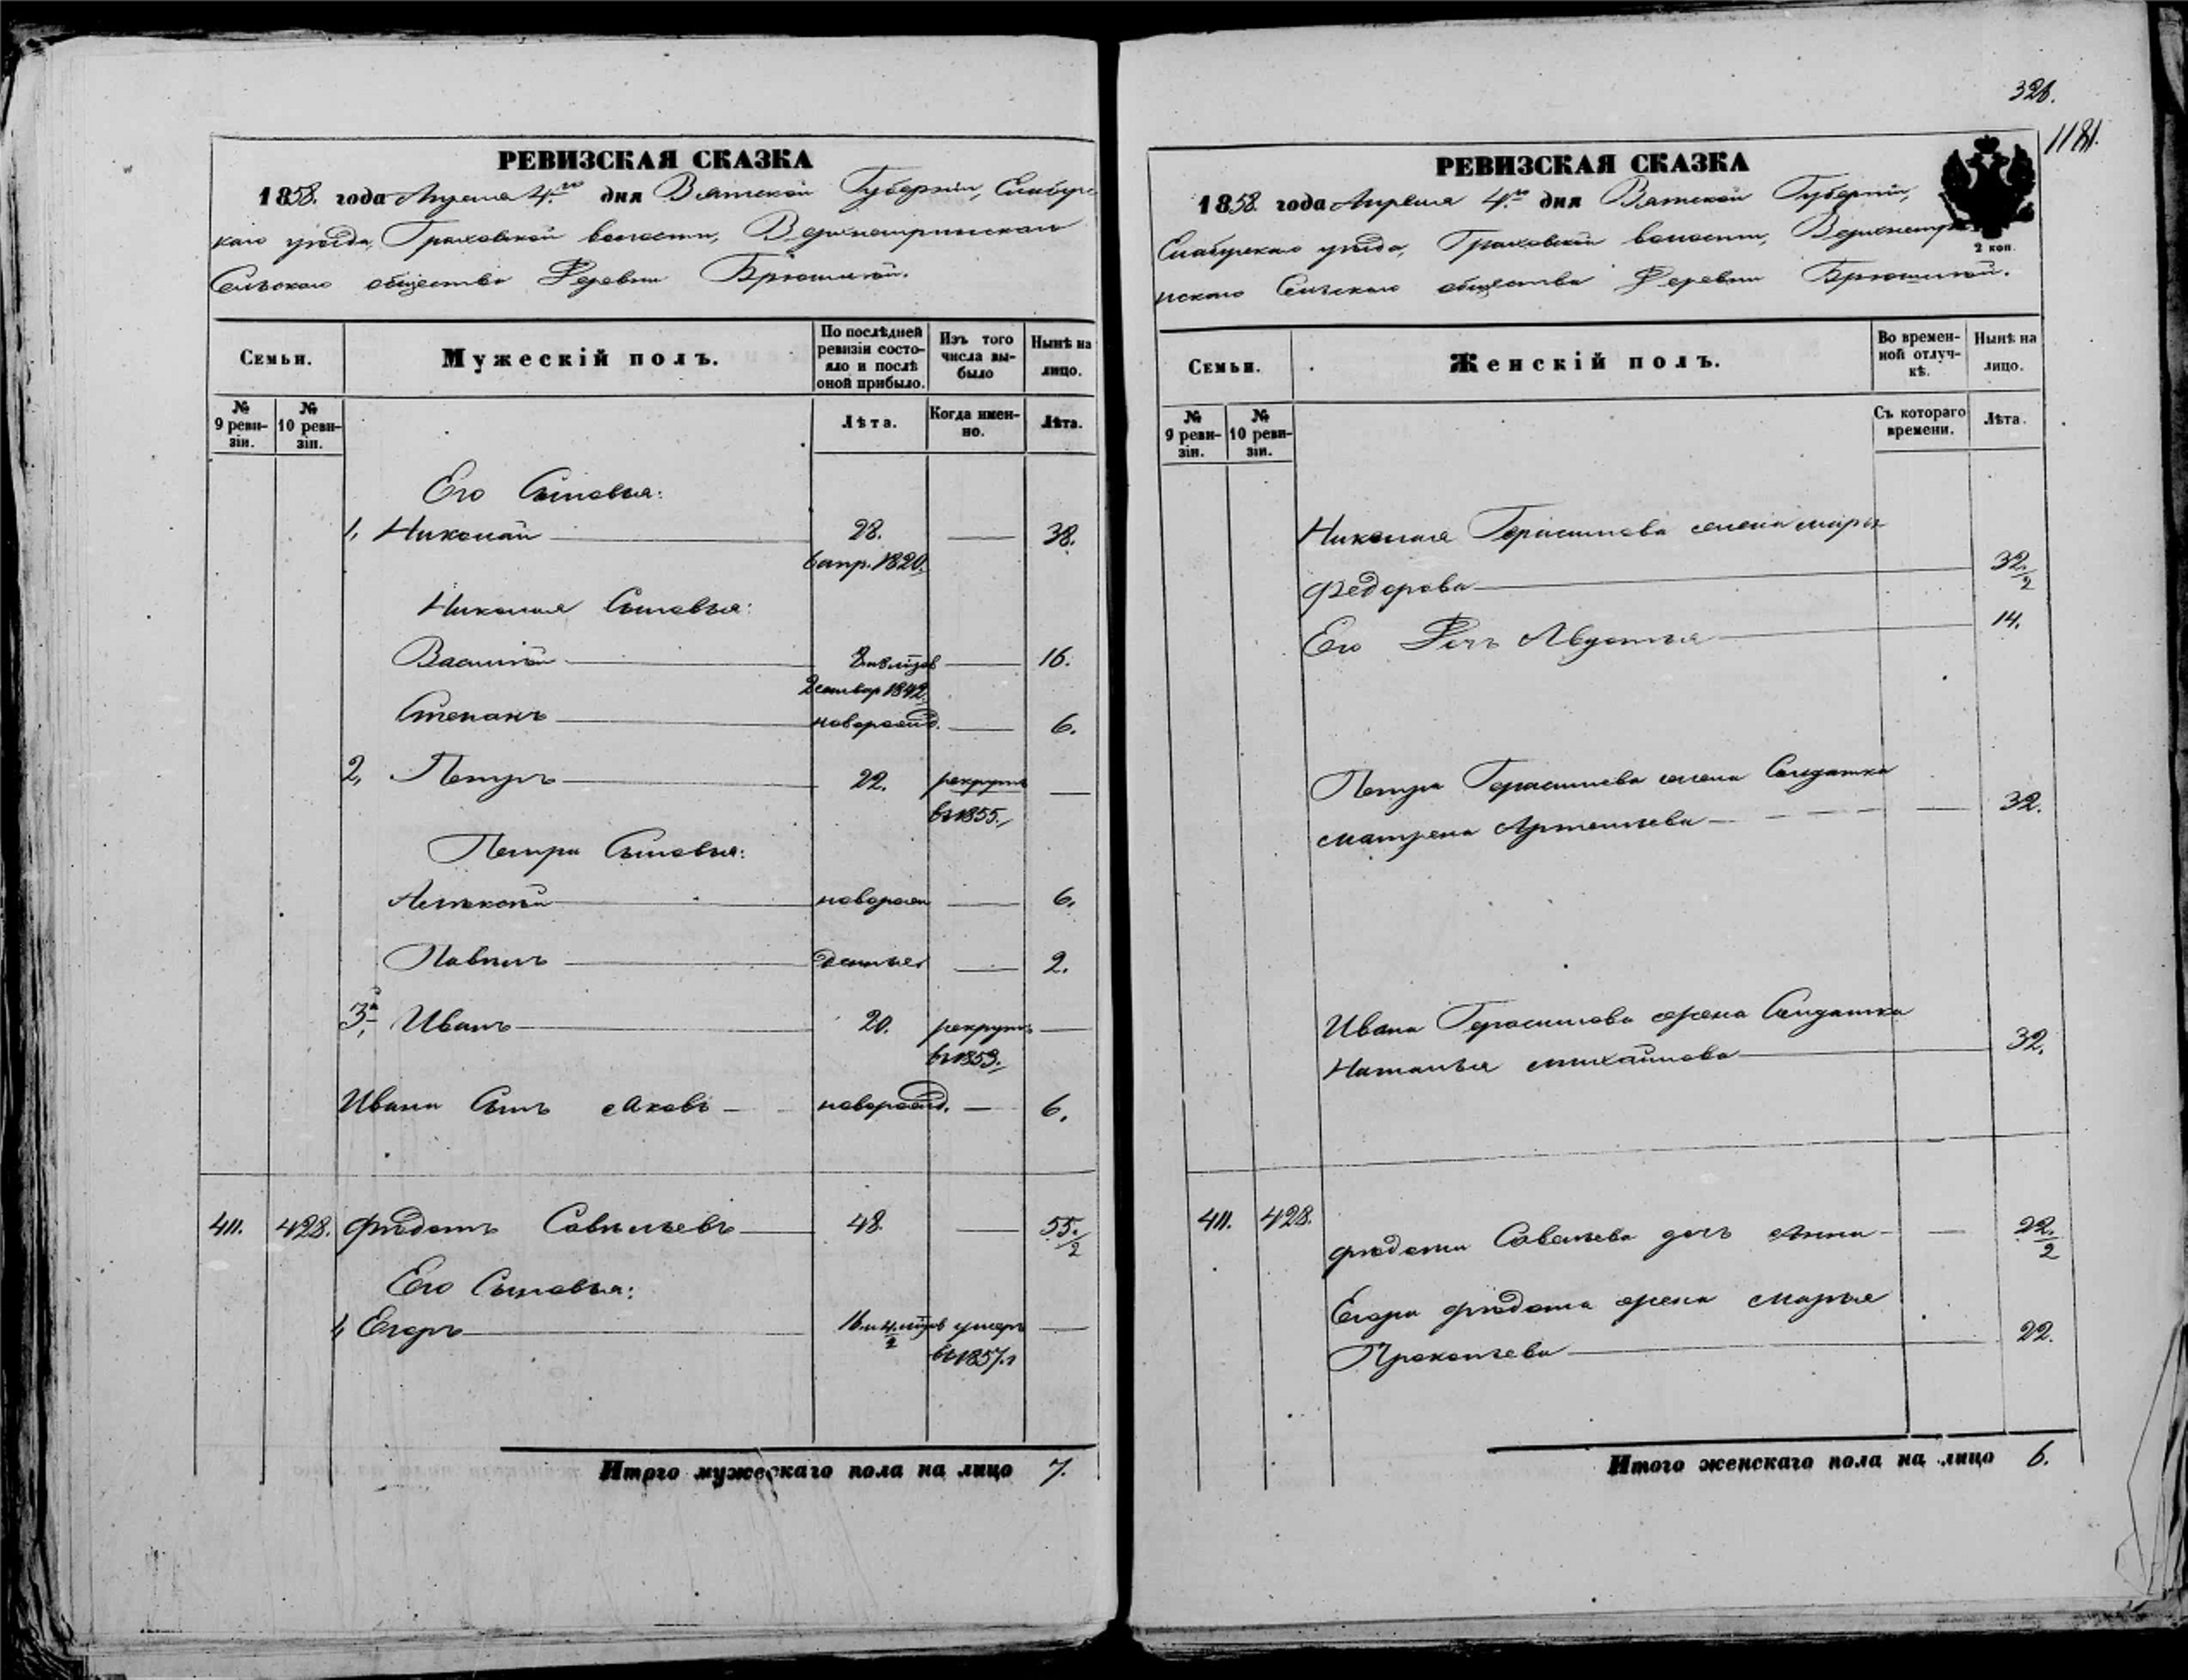 РЕВИЗСКАЯ СКАЗКА
1858. года Апреля 4.го дня Вятской Губерніи, Елабугс
каго уѣзда, Граховской волости,
Сельскаго общества Деревни Брюшиной.
Семьи.
Мужескій полъ.
По послѣдней ревизіи состояло и послѣ оной прибыло.
Изъ того числа выбыло
Нынѣ на лицо.
№ 9 ревизіи.
№ 10 ревизіи.
Лѣта.
Когда именно.
Лѣта.
Его Сыновья:
1, Николай 28. 38.
1820.
Николая Сыновья:
Василій 16.
1842.
Степанъ новорожд. 6.
2, Петръ 22. рекрутъ
въ 1855.
Петра Сыновья:
Алексѣй новорож 6.
Павелъ 2.
3, Иванъ 20. рекрутъ
въ 1853.
Ивана Сынъ Яковъ новорожд. 6.
411. 428. Ѳедотъ Савельевъ 48. 55./2
Его Сыновья:
1, Егоръ умеръ
въ 1857.
Итого мужескаго пола на лицо 7.
326.
1181.
РЕВИЗСКАЯ СКАЗКА
1858. года Апреля 4.го дня Вятской Губерніи,
2 коп.
Елабугскаго уѣзда, Граховской волости,
нскаго Сельскаго общества Деревни Брюшиной.
Семьи.
Женскій полъ.
Во временной отлучкѣ.
Нынѣ на лицо.
№ 9 ревизіи.
№ 10 ревизіи.
Съ котораго времени.
Лѣта.
Николая Герасимова жена Марья
Федорова 32./2
Его Дочь Авдотья 14.
Петра Герасимова жена Солдатка
Матрена Артемьева 32.
Ивана Герасимова жена Солдатка
Наталья Михайлова 32.
411. 428.
Ѳедота Савельева дочь Анна 22./2
Егора Ѳедота жена Марья
Прокопьева 22.
Итого женскаго пола на лицо 6.